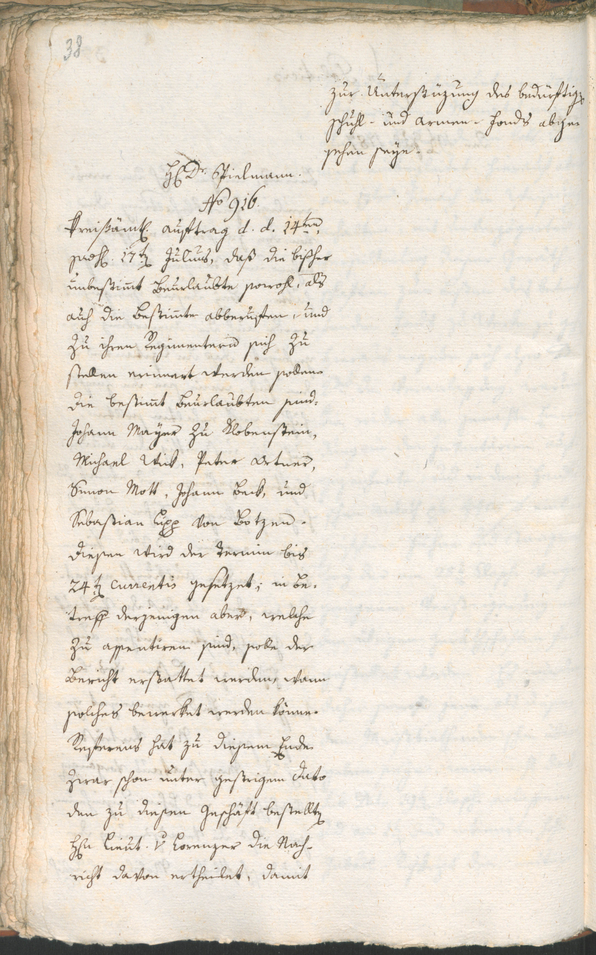 38
zur Unterstüzung des bedürftigen
Schuhl- und Armen-Fonds abzu
sehen seye.
H. Dr. Spielmann.
No 916.
Kreisämtl. Auftrag d. d. 14ten
17t Julius, daß die bisher
unbestimt Beurlaubte sowohl, als
auch die Bestimte abberuffen, und
zu ihren Regimentern sich zu
stellen erinnert werden sollen.
Die bestimt Beurlaubten sind:
Johann Mayer zu Wobenstein,
Michael Peter Ortner,
Simon Mott, Johann Beck, und
Sebastian Lipp von Botzen.
Diesen wird der Termin bis
24t currentis gesetzet; in Be-
treff derjenigen aber, welche
zu assentiren sind, solle der
Bericht erstattet werden, wann
solches bewerket werden könne.
Referens hat zu diesem Ende
zwar schon unter gestrigem Dato
den zu diesem Geschäft bestellten
H. Lieut. v Lorenzer die Nach-
richt davon ertheilet, damit